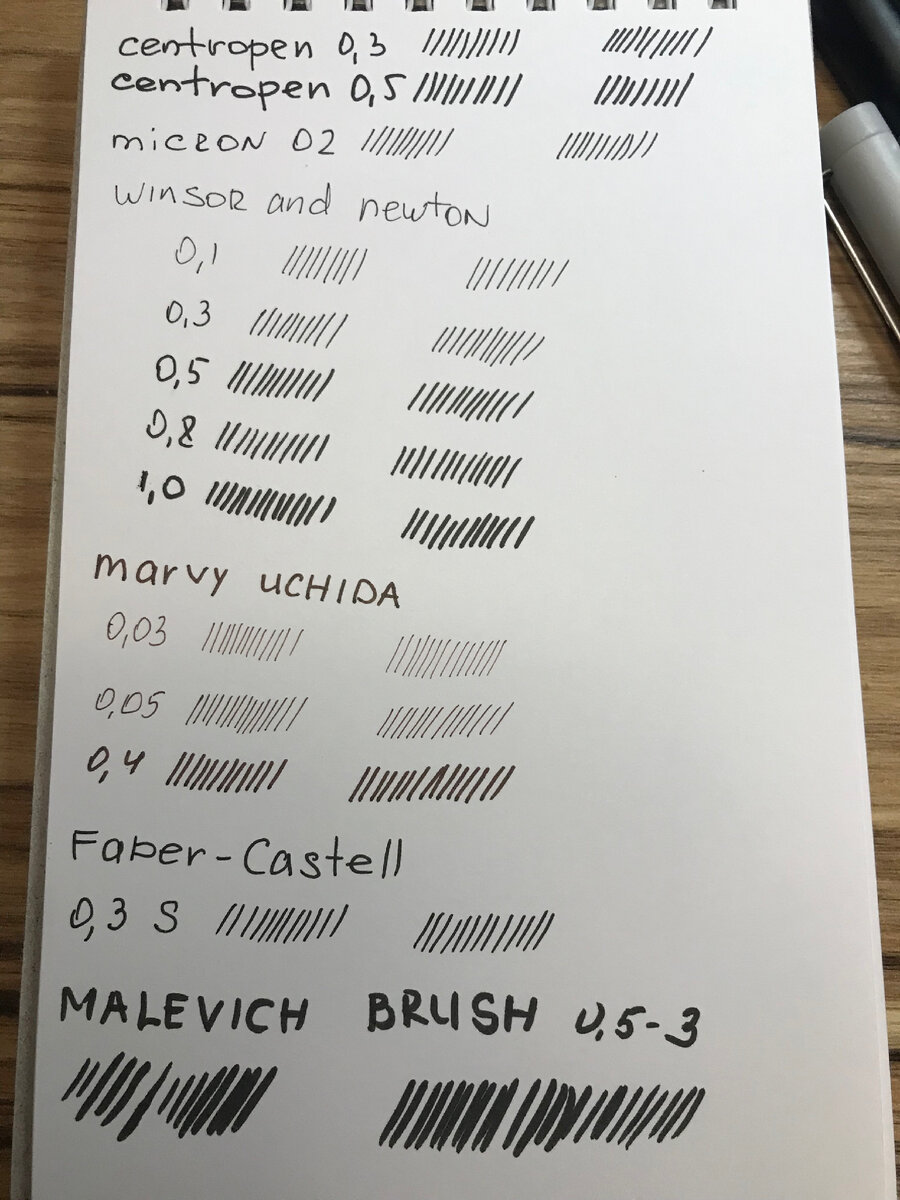 centropen 0,3
centropen 0,5
micRON 02
WINSOR and newtON
0,1
0,3
0,5
0,8
1,0
marvy UCHIDA
0,03
0,05
0,4
Faber-Castell
0,3 S
MALEVICH BRUSH 0,5-3